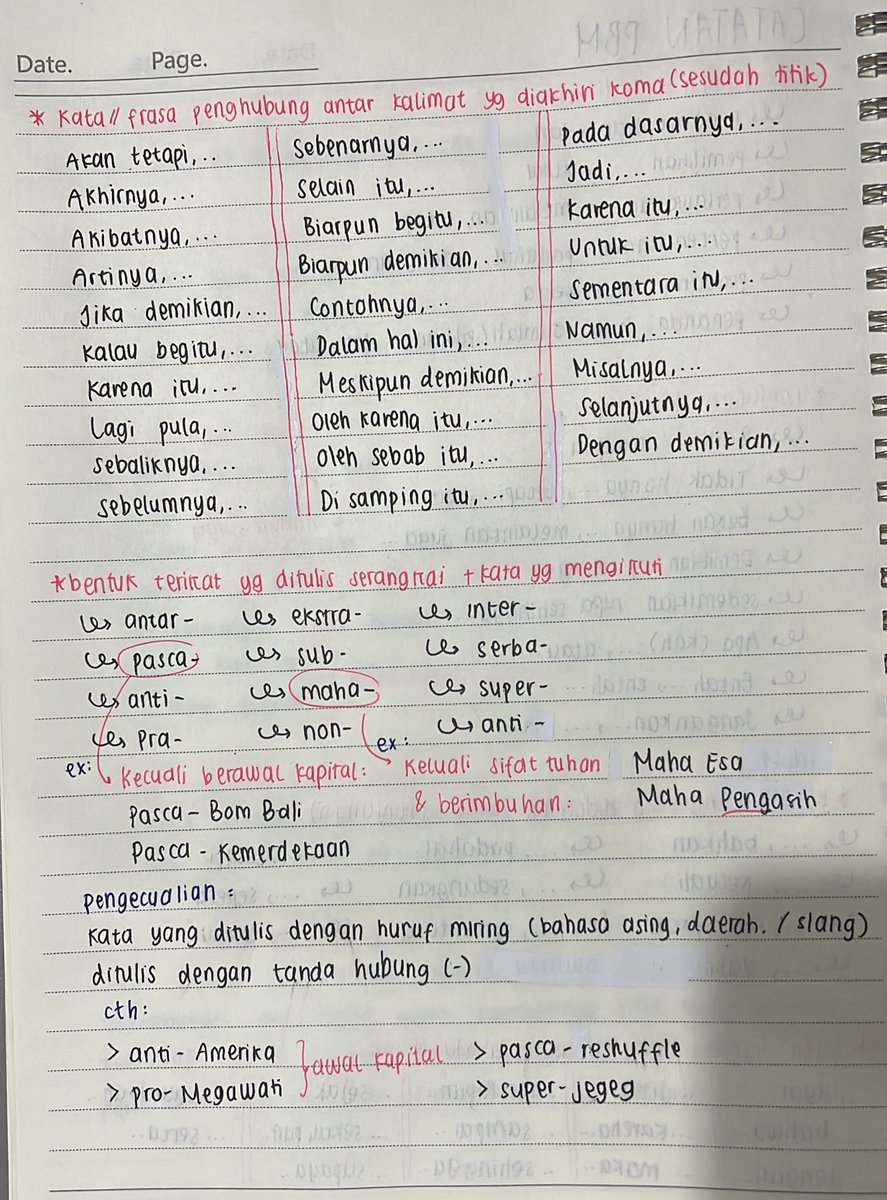 Date. Page.
* Kata// frasa penghubung antar kalimat yg diakhiri koma (sesudah titik)
Akan tetapi,..
Akhirnya,...
Akibatnya,...
Artinya,...
Jika demikian,...
Kalau begitu,...
Karena itu,...
Lagi pula,...
sebaliknya,...
sebelumnya,...
Sebenarnya,...
Selain itu,...
Biarpun begitu,...
Biarpun demikian,...
Contohnya,...
Dalam hal ini,...
Meskipun demikian,...
Oleh karena itu,...
Oleh sebab itu,...
Di samping itu,...
Pada dasarnya,...
Jadi,...
Karena itu,...
Untuk itu,...
Sementara itu,...
Namun,...
Misalnya,...
Selanjutnya,...
Dengan demikian,...
*bentuk terikat yg ditulis serangkai + kata yg mengikuti
antar- ekstra- inter-
pasca- sub- serba-
anti- maha- super-
pra- non- anti-
ex: Kecuali berawal kapital:
Pasca-Bom Bali
Pasca-Kemerdekaan
ex: Keluali sifat tuhan
& berimbuhan:
Maha Esa
Maha Pengasih
Pengecualian:
Kata yang ditulis dengan huruf miring (bahasa asing, daerah. / slang)
ditulis dengan tanda hubung (-)
cth:
> anti-Amerika
> pro-Megawati
awal kapital
> pasca-reshuffle
> super-jegeg